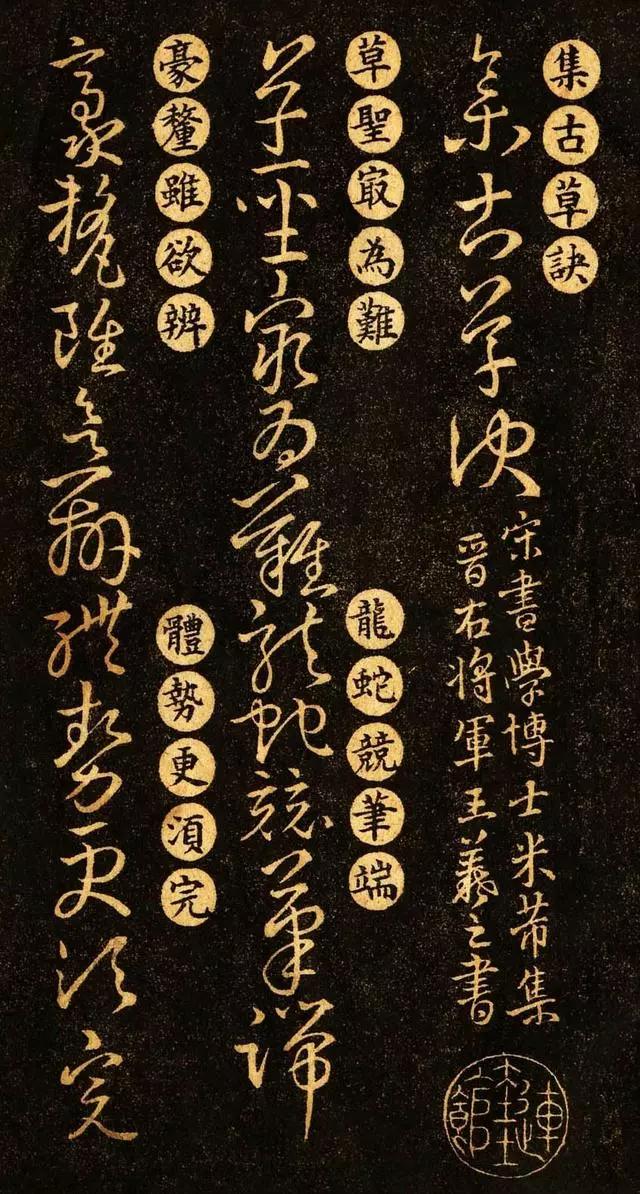 集古草訣
集古草訣
宋書學博士米芾集
晉右將軍王羲之書
草聖㝡為難
龍蛇競筆端
草聖㝡為難龍蛇競筆端
豪釐雖欲辨
體勢更湏完
豪釐雖欲辨體勢更須完